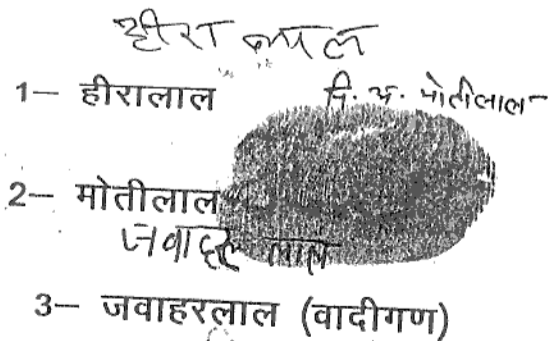 हीरा लाल
1– हीरालाल
नि. अ. मोतीलाल
2– मोतीलाल
जवाहर लाल
3– जवाहरलाल (वादीगण)